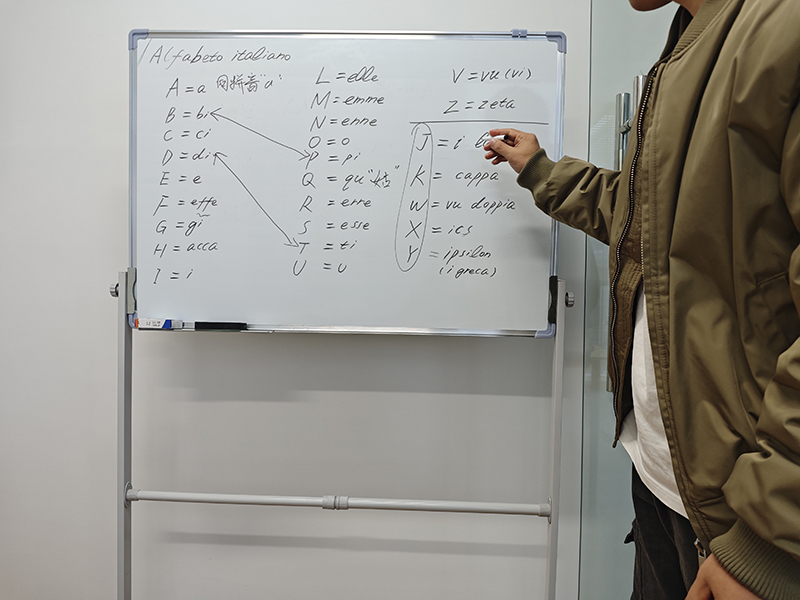 Alfabeto italiano
A = a 同拼音"a"
B = bi
C = ci
D = di
E = e
F = effe
G = gi
H = acca
I = i
L = elle
M = emme
N = enne
O = o
P = pi
Q = qu
R = erre
S = esse
T = ti
U = u
V = vu (vi)
Z = zeta
J = i
K = cappa
W = vu doppia
X = ics
Y = ipsilon
(i greca)